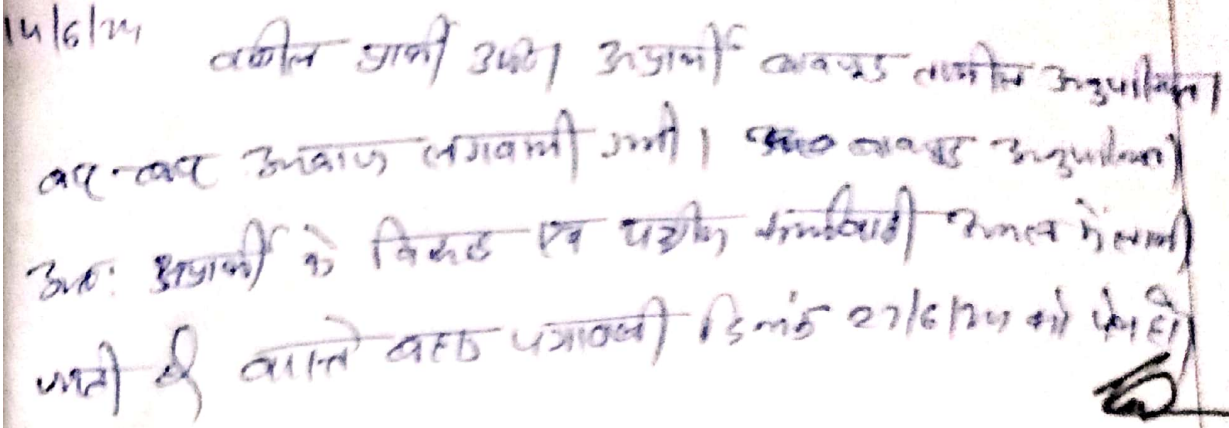 14/6/24
वकील प्रार्थी उप०। अप्रार्थी बावजूद तामील अनुपस्थित।
बार-बार आवाज लगवायी गयी। बावजूद अनुपस्थित।
अतः अप्रार्थी के विरूद्ध एक पक्षीय कार्यवाही अमल में लायी
जाती है वास्ते बहस पत्रावली दिनांक 27/6/24 को पेश हो।